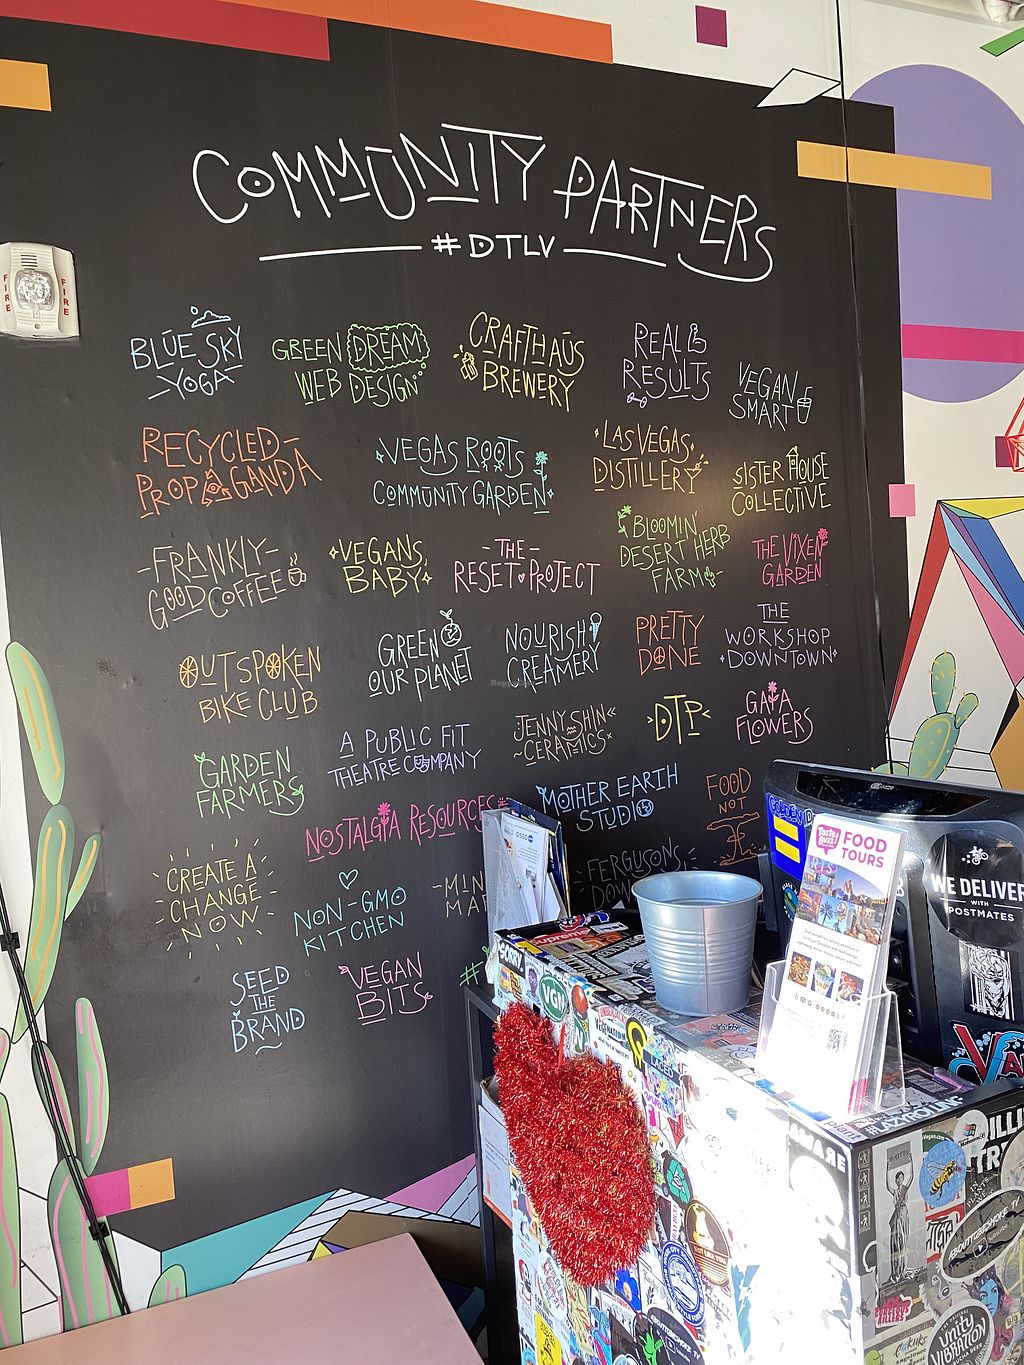 COMMUNITY PARTNERS
#DTLV
FIRE
FIRE
BLUE SKY
YOGA
GREEN DREAM
WEB DESIGN
CRAFTHAUS
BREWERY
REAL
RESULTS
VEGAN
SMART
RECYCLED
PROPAGANDA
VEGAS ROOTS
COMMUNITY GARDEN
LAS VEGAS
DISTILLERY
SISTER HOUSE
COLLECTIVE
FRANKLY
GOOD COFFEE
VEGANS,
BABY
THE
RESET PROJECT
BLOOMIN'
DESERT HERB
FARM
THE VIXEN
GARDEN
OUTSPOKEN
BIKE CLUB
GREEN
OUR PLANET
NOURISH
CREAMERY
PRETTY
DONE
THE
WORKSHOP
DOWNTOWN
GARDEN
FARMERS
A PUBLIC FIT
THEATRE COMPANY
JENNY SHIN
CERAMICS
DTP
GAIA
FLOWERS
NOSTALGIA RESOURCES
MOTHER EARTH
STUDIO
FOOD
NOT
CREATE A
CHANGE
NOW
NON-GMO
KITCHEN
MIN
MA
FERGUSONS
DOW
SEED
THE
BRAND
VEGAN
BITS
#
FOOD
TOURS
WE DELIVER
WITH
POSTMATES
VGN
#LAZYROLLING
ABOUTTHESMOKE
unity
VIBRATION